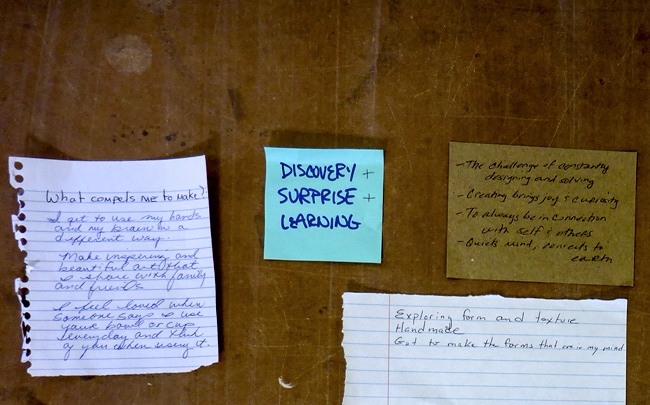 What compels me to make?
I get to use my hands
and my brain in a
different way.
Make inspiring and
beautiful art that
I share with family
and friends
I feel loved when
someone says I use
your bowl or cup
everyday and think
of you when using it.
DISCOVERY +
SURPRISE +
LEARNING
- The challenge of constantly
designing and solving
- Creating brings joy & curiosity
- To always be in connection
with self & others
- Quiets mind, connects to
earth
Exploring form and texture
Handmade
Get to make the forms that are in my mind.